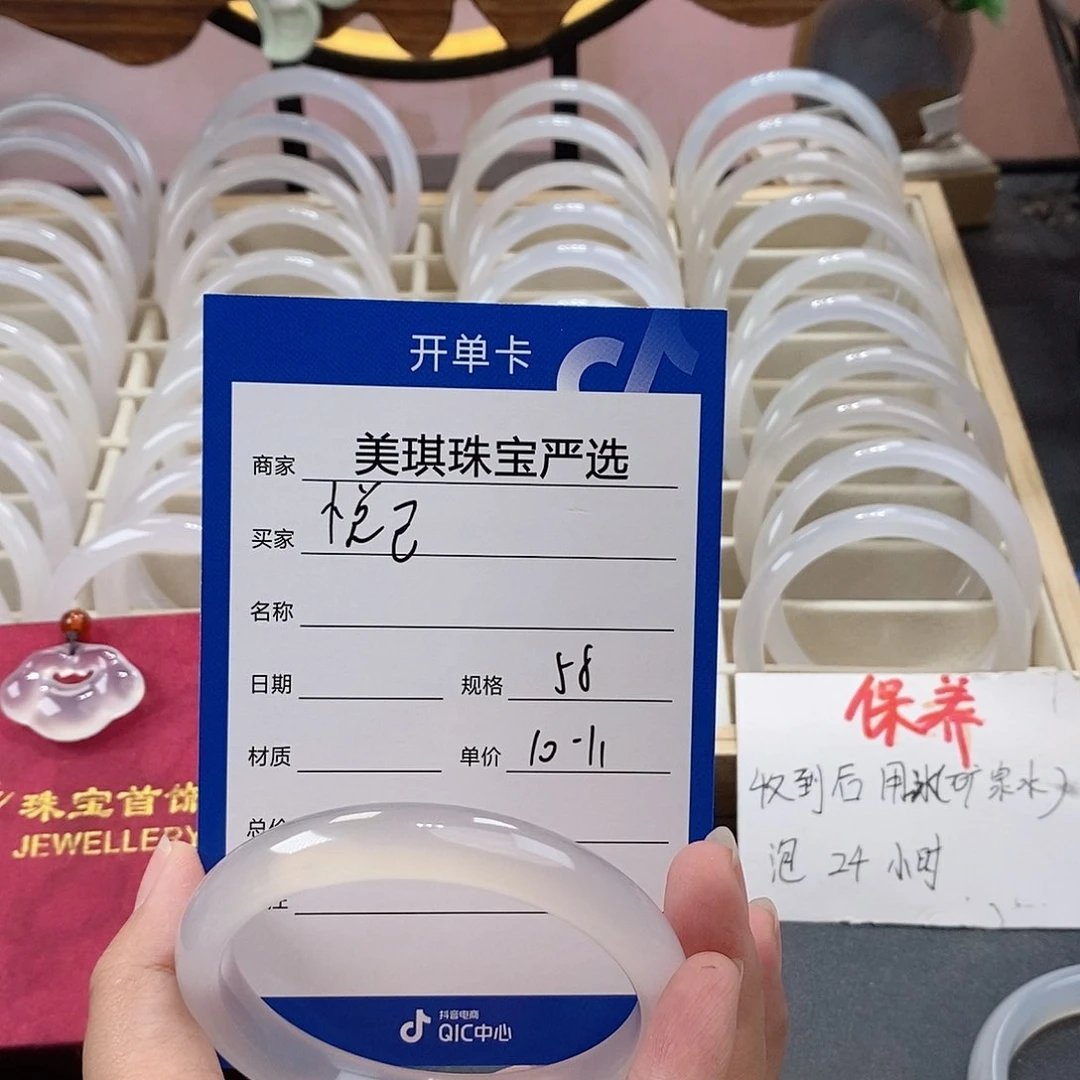 开单卡
商家 美琪珠宝严选
买家 悦己
名称
日期 规格 58
材质 单价 10-11
总价
抖音电商
QIC中心
珠宝首饰
JEWELLERY
保养
收到后用水(矿泉水)
泡 24 小时